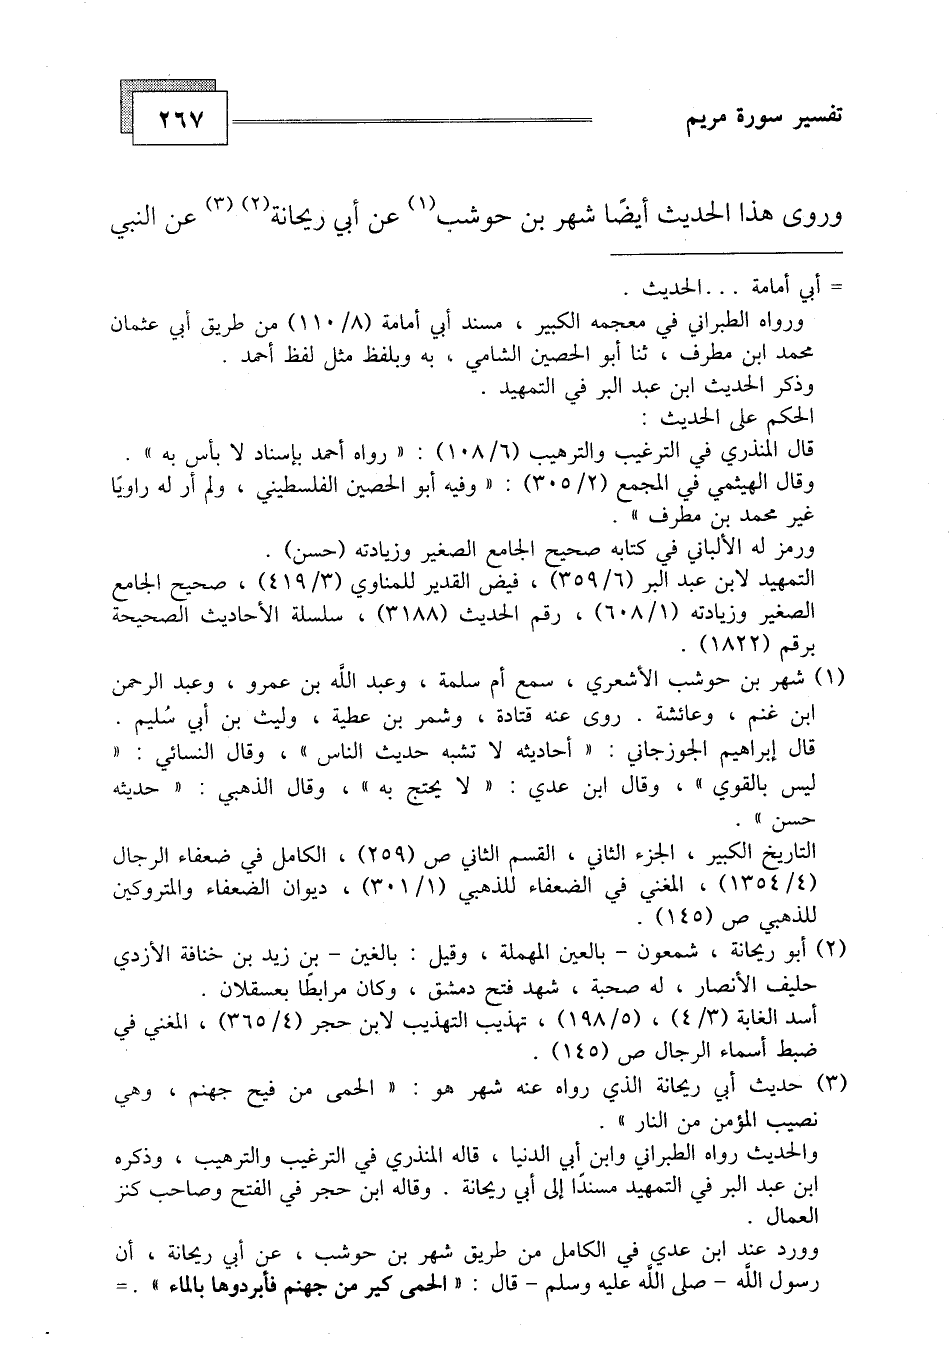 تفسير سورة مريم
٢٦٧
وروى هذا الحديث أيضًا شهر بن حوشب(١) عن أبي ريحانة(٢) (٣) عن النبي
= أبي أمامة ... الحديث .
ورواه الطبراني في معجمه الكبير ، مسند أبي أمامة (١١٠/٨) من طريق أبي عثمان
محمد ابن مطرف ، ثنا أبو الحصين الشامي ، به وبلفظ مثل لفظ أحمد .
وذكر الحديث ابن عبد البر في التمهيد .
الحكم على الحديث :
قال المنذري في الترغيب والترهيب (١٠٨/٦) : « رواه أحمد بإسناد لا بأس به » .
وقال الهيثمي في المجمع (٣٠٥/٢) : « وفيه أبو الحصين الفلسطيني ، ولم أر له راويًا
غير محمد بن مطرف » .
ورمز له الألباني في كتابه صحيح الجامع الصغير وزيادته (حسن) .
التمهيد لابن عبد البر (٣٥٩/٦) ، فيض القدير للمناوي (٤١٩/٣) ، صحيح الجامع
الصغير وزيادته (٦٠٨/١) ، رقم الحديث (٣١٨٨) ، سلسلة الأحاديث الصحيحة
برقم (١٨٢٢) .
(١) شهر بن حوشب الأشعري ، سمع أم سلمة ، وعبد اللَّه بن عمرو ، وعبد الرحمن
ابن غنم ، وعائشة . روى عنه قتادة ، وشمر بن عطية ، وليث بن أبي سُليم .
قال إبراهيم الجوزجاني : « أحاديثه لا تشبه حديث الناس » ، وقال النسائي : «
ليس بالقوي » ، وقال ابن عدي : « لا يحتج به » ، وقال الذهبي : « حديثه
حسن » .
التاريخ الكبير ، الجزء الثاني ، القسم الثاني ص (٢٥٩) ، الكامل في ضعفاء الرجال
(١٣٥٤/٤) ، المغني في الضعفاء للذهبي (٣٠١/١) ، ديوان الضعفاء والمتروكين
للذهبي ص (١٤٥) .
(٢) أبو ريحانة ، شمعون – بالعين المهملة ، وقيل : بالغين – بن زيد بن خنافة الأزدي
حليف الأنصار ، له صحبة ، شهد فتح دمشق ، وكان مرابطًا بعسقلان .
أسد الغابة (٤/٣) ، (١٩٨/٥) ، تهذيب التهذيب لابن حجر (٣٦٥/٤) ، المغني في
ضبط أسماء الرجال ص (١٤٥) .
(٣) حديث أبي ريحانة الذي رواه عنه شهر هو : « الحمى من فيح جهنم ، وهي
نصيب المؤمن من النار » .
والحديث رواه الطبراني وابن أبي الدنيا ، قاله المنذري في الترغيب والترهيب ، وذكره
ابن عبد البر في التمهيد مسندًا إلى أبي ريحانة . وقاله ابن حجر في الفتح وصاحب كنز
العمال .
وورد عند ابن عدي في الكامل من طريق شهر بن حوشب ، عن أبي ريحانة ، أن
رسول اللَّه – صلى اللَّه عليه وسلم – قال : « الحمى كير من جهنم فأبردوها بالماء » . =